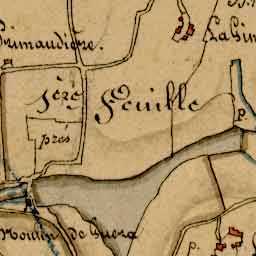 Primaudière.
1ère Feuille
prés
p.
Moulin de Guéra
p.